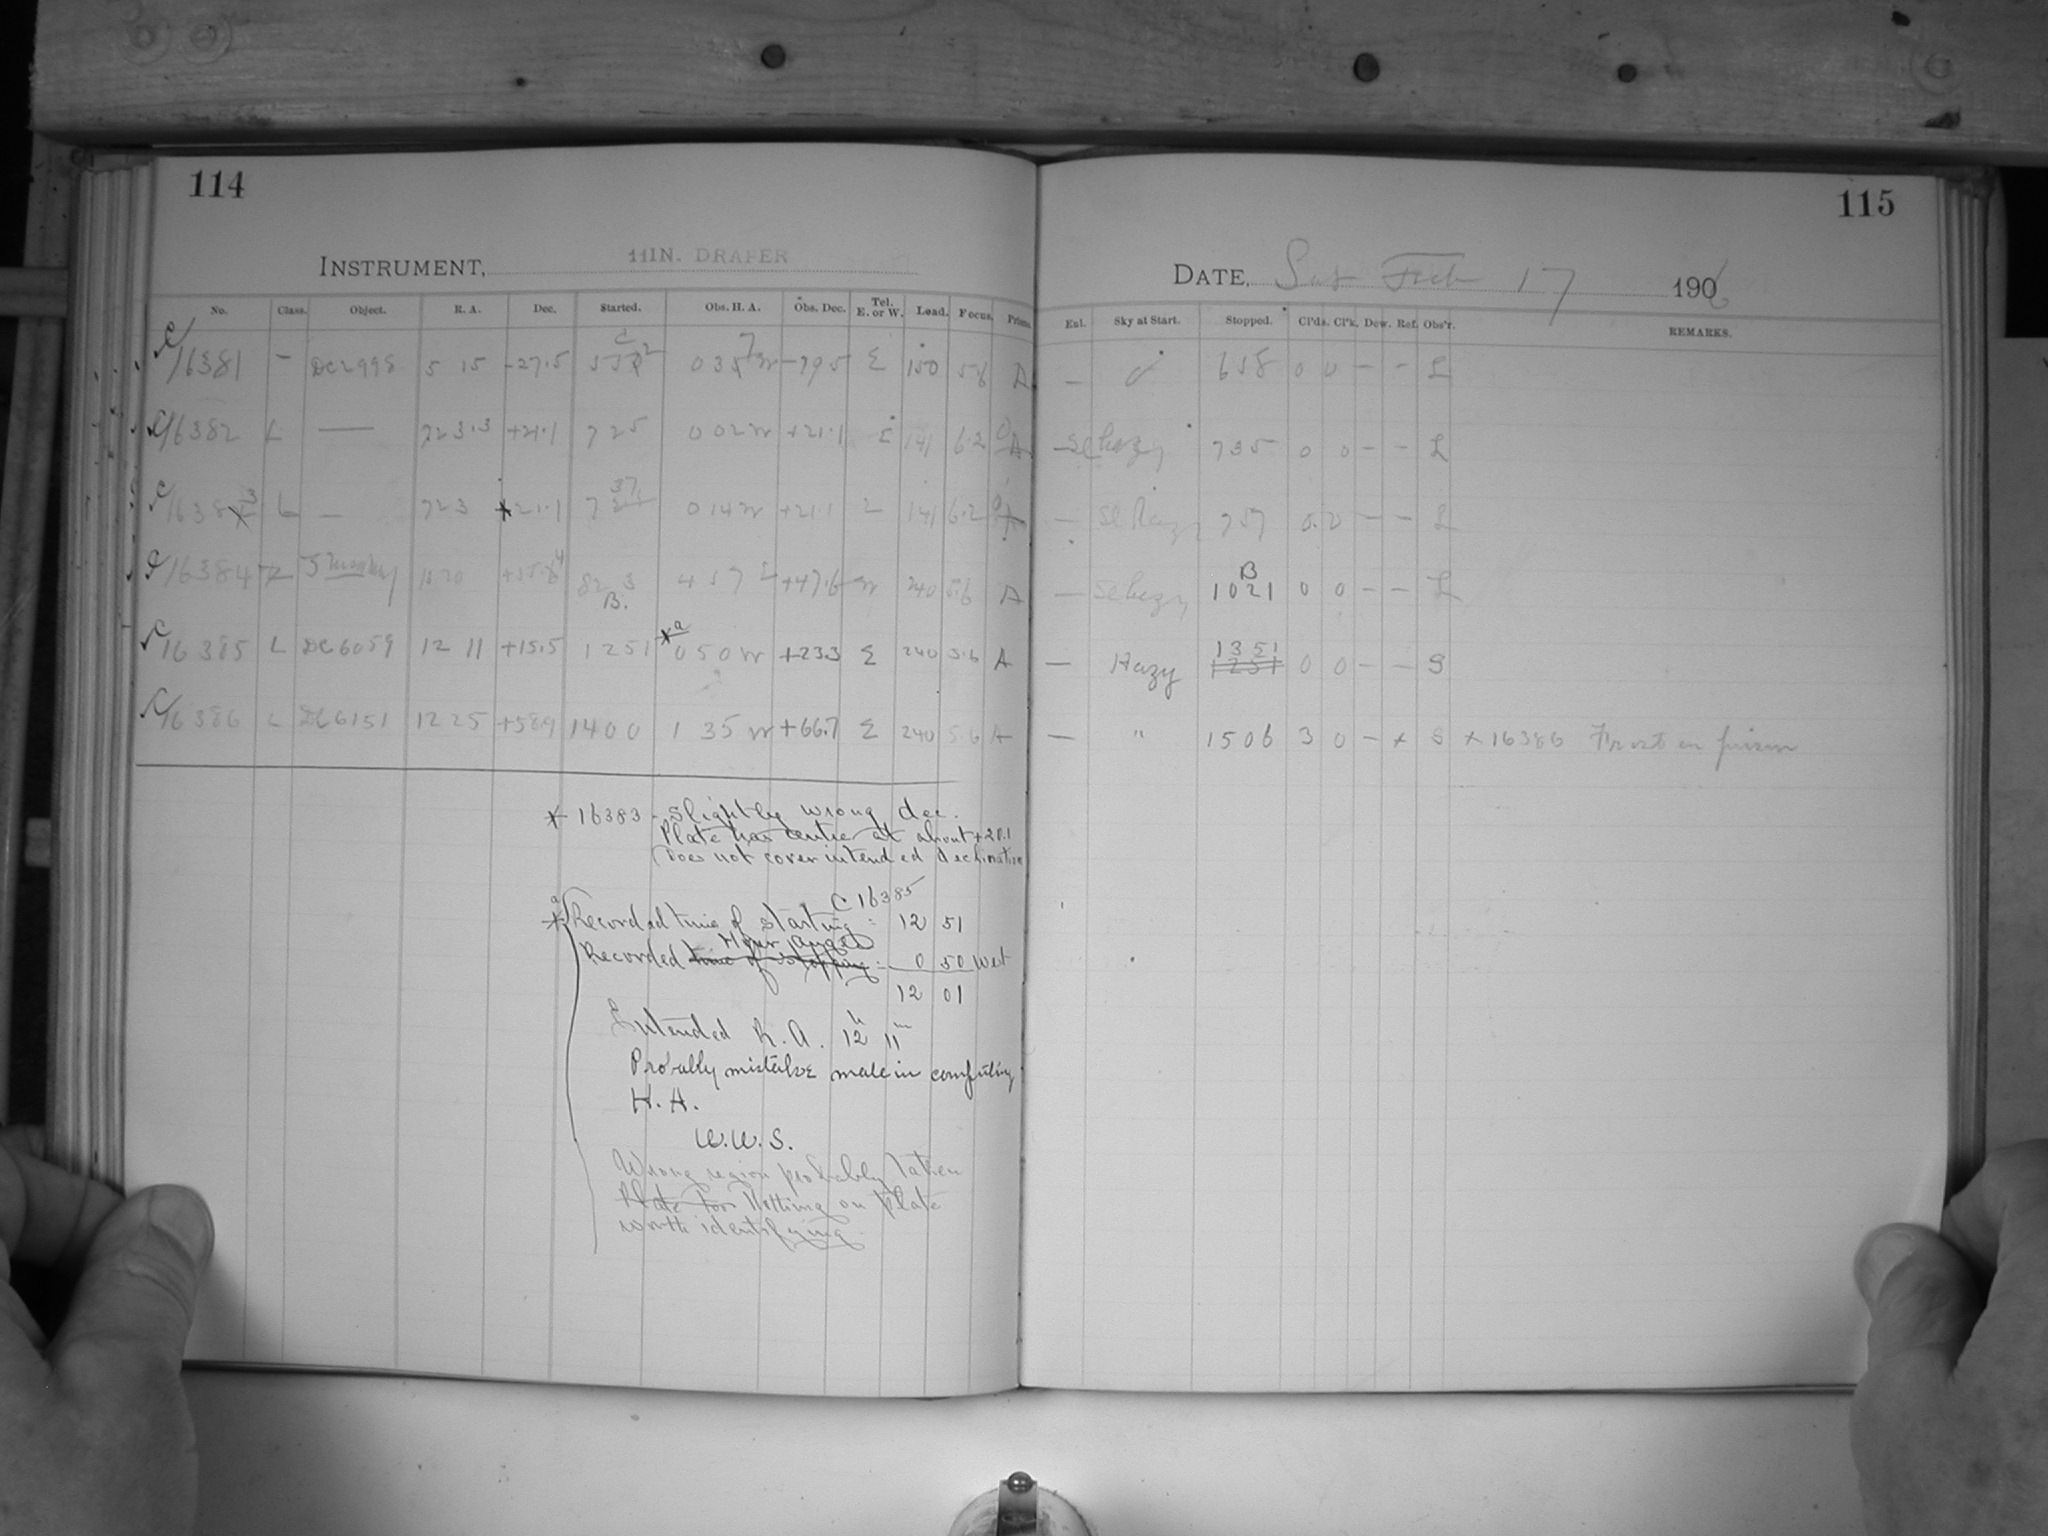 114
115
INSTRUMENT, 11IN. DRAPER
DATE, Sat Feb 17 1906
No. Class. Object. R. A. Dec. Started. Obs. H. A. Obs. Dec. Tel. E. or W. Load. Focus. Prism. Enl. Sky at Start. Stopped. Cl'ds. Cl'k. Dew. Ref. Obs'r. REMARKS.
C 16381 – DC2998 5 15 -27.5 0 35 W -79.5 E 150 5.6 A – 658 0 0 – – L
C 16382 L — 7 23.3 +21.1 7 25 0 02 W +21.1 E 141 6.2 – Sl hazy 735 0 0 – – L
C 16383 L — 7 23 +21.1 7 37 0 14 W +21.1 141 6.2 – Sl hazy 757 0 0 – – L
C 16384 +47.6 W 240 5.6 A – Sl hazy B 1021 0 0 – – L
C 16385 L DC6059 12 11 +15.5 1251 *a 0 50 W +23.3 E 240 5.6 A — Hazy 1351 1251 0 0 – – S
C 16386 L DC6151 12 25 +58.9 1400 1 35 W +66.7 E 240 5.6 A — " 1506 3 0 – × S × 16386 Frost on prism
* 16383 - Slightly wrong dec.
Plate has centre at about +20.1
Does not cover intended declination
C 16385
*a Recorded time of starting = 12 51
Hour angle
Recorded time of stopping = 0 50 West
12 01
Intended R. A. 12h 11m
Probably mistake made in computing
H. A.
W. W. S.
Wrong region probably taken
Plate for Nothing on plate
worth identifying.